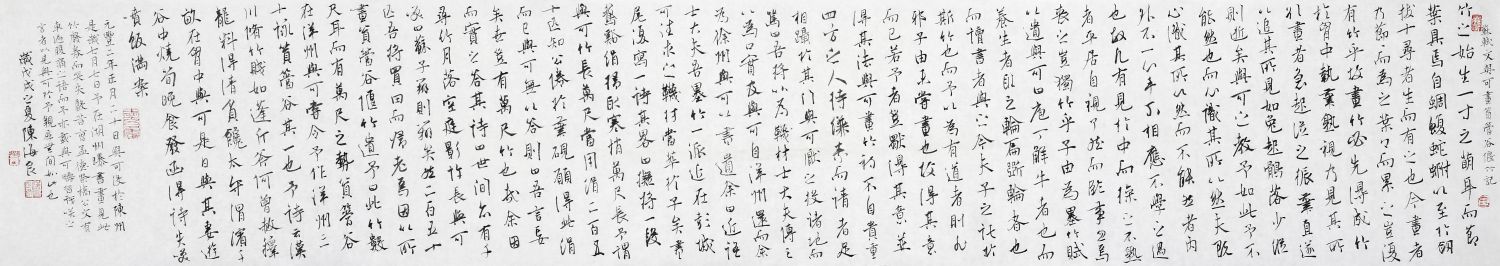 蘇軾文與可畫篔簹谷偃竹記
竹之始生一寸之萌耳而節
葉具焉自蜩蝮蛇蚹以至於劍
拔十尋者生而有之也今畫者
乃節而為之葉而累之豈復
有竹乎故畫竹必先得成竹
於胸中執筆熟視乃見其所
欲畫者急起從之振筆直遂
以追其所見如兔起鶻落少縱
則逝矣與可之教予如此予不
能然也而心識其所以然夫既
心識其所以然而不能然者內
外不一心手不相應不學之過
也故凡有見於中而操之不熟
者平居自視了然而臨事忽焉
喪之豈獨竹乎子由為墨竹賦
以遺與可曰庖丁解牛者也而
養生者取之輪扁斲輪者也
而讀書者與之今夫子之託於
斯竹也而予以為有道者則非
邪子由未嘗畫也故得其意
而已若予者豈獨得其意並
得其法與可畫竹初不自貴重
四方之人持縑素而請者足
相躡於其門與可厭之投諸地而
罵曰吾將以為襪材士大夫傳之
以為口實及與可自洋州還而余
為徐州與可以書遺余曰近語
士大夫吾墨竹一派近在彭城
可往求之襪材當萃於子矣書
尾復寫一詩其略曰擬將一段
鵝谿絹掃取寒梢萬尺長予謂
與可竹長萬尺當用絹二百五
十匹知公倦於筆硯願得此絹
而已與可無以答則曰吾言妄
矣世豈有萬尺竹也哉余因
而實之答其詩曰世間亦有千
尋竹月落空庭影許長與可
笑曰蘇子辯則辯矣然二百五十
匹吾將買田而歸老焉因以所
畫篔簹谷偃竹遺予曰此竹數
尺耳而有萬尺之勢篔簹谷
在洋州與可嘗令予作洋州三
十詠篔簹谷其一也予詩云漢
川修竹賤如蓬斤斧何曾赦籜
龍料得清貧饞太守渭濱千
畝在胸中與可是日與其妻遊
谷中燒筍晚食發函得詩失笑
噴飯滿案
元豐二年正月二十日與可沒於陳州
是歲七月七日予在湖州曝書畫見此
竹廢卷而哭失聲昔曹孟德祭橋公文有
車過腹痛之語而予亦載與可疇昔戲笑之
言者以見與可於予親厚無間如此也
歲戊戌之夏陳海良